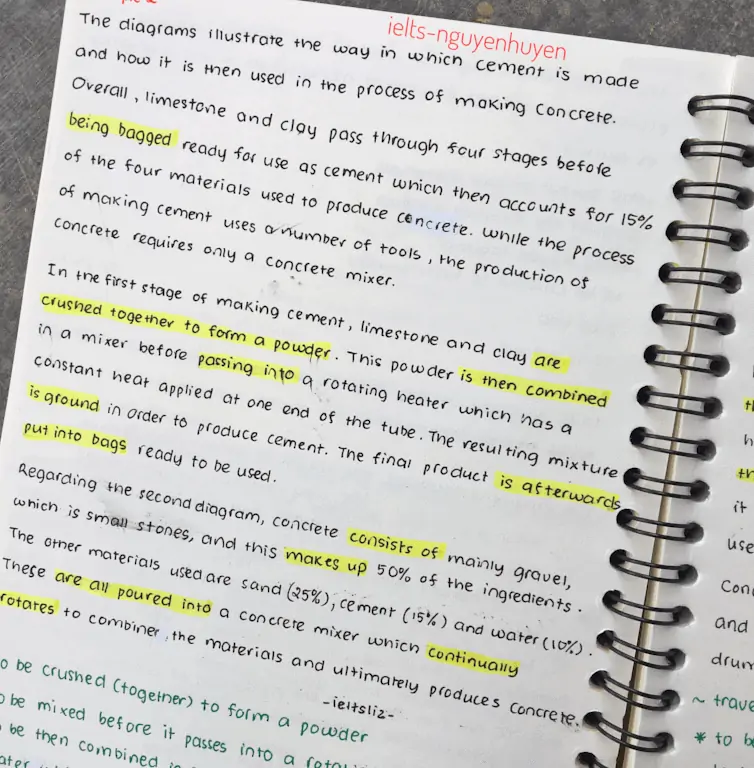 ielts-nguyenhuyen
The diagrams illustrate the way in which cement is made
and how it is then used in the process of making concrete.
Overall, limestone and clay pass through four stages before
being bagged ready for use as cement which then accounts for 15%
of the four materials used to produce concrete. While the process
of making cement uses a number of tools, the production of
concrete requires only a concrete mixer.
In the first stage of making cement, limestone and clay are
crushed together to form a powder. This powder is then combined
in a mixer before passing into a rotating heater which has a
constant heat applied at one end of the tube. The resulting mixture
is ground in order to produce cement. The final product is afterwards
put into bags ready to be used.
Regarding the second diagram, concrete consists of mainly gravel,
which is small stones, and this makes up 50% of the ingredients.
The other materials used are sand (25%), cement (15%) and water (10%).
These are all poured into a concrete mixer which continually
rotates to combiner, the materials and ultimately produces concrete.
-ieltsliz-
o be crushed (together) to form a powder
o be mixed before it passes into a
be then combined
th
h
th
it
use
Con
and
drum
~ trave
* to be